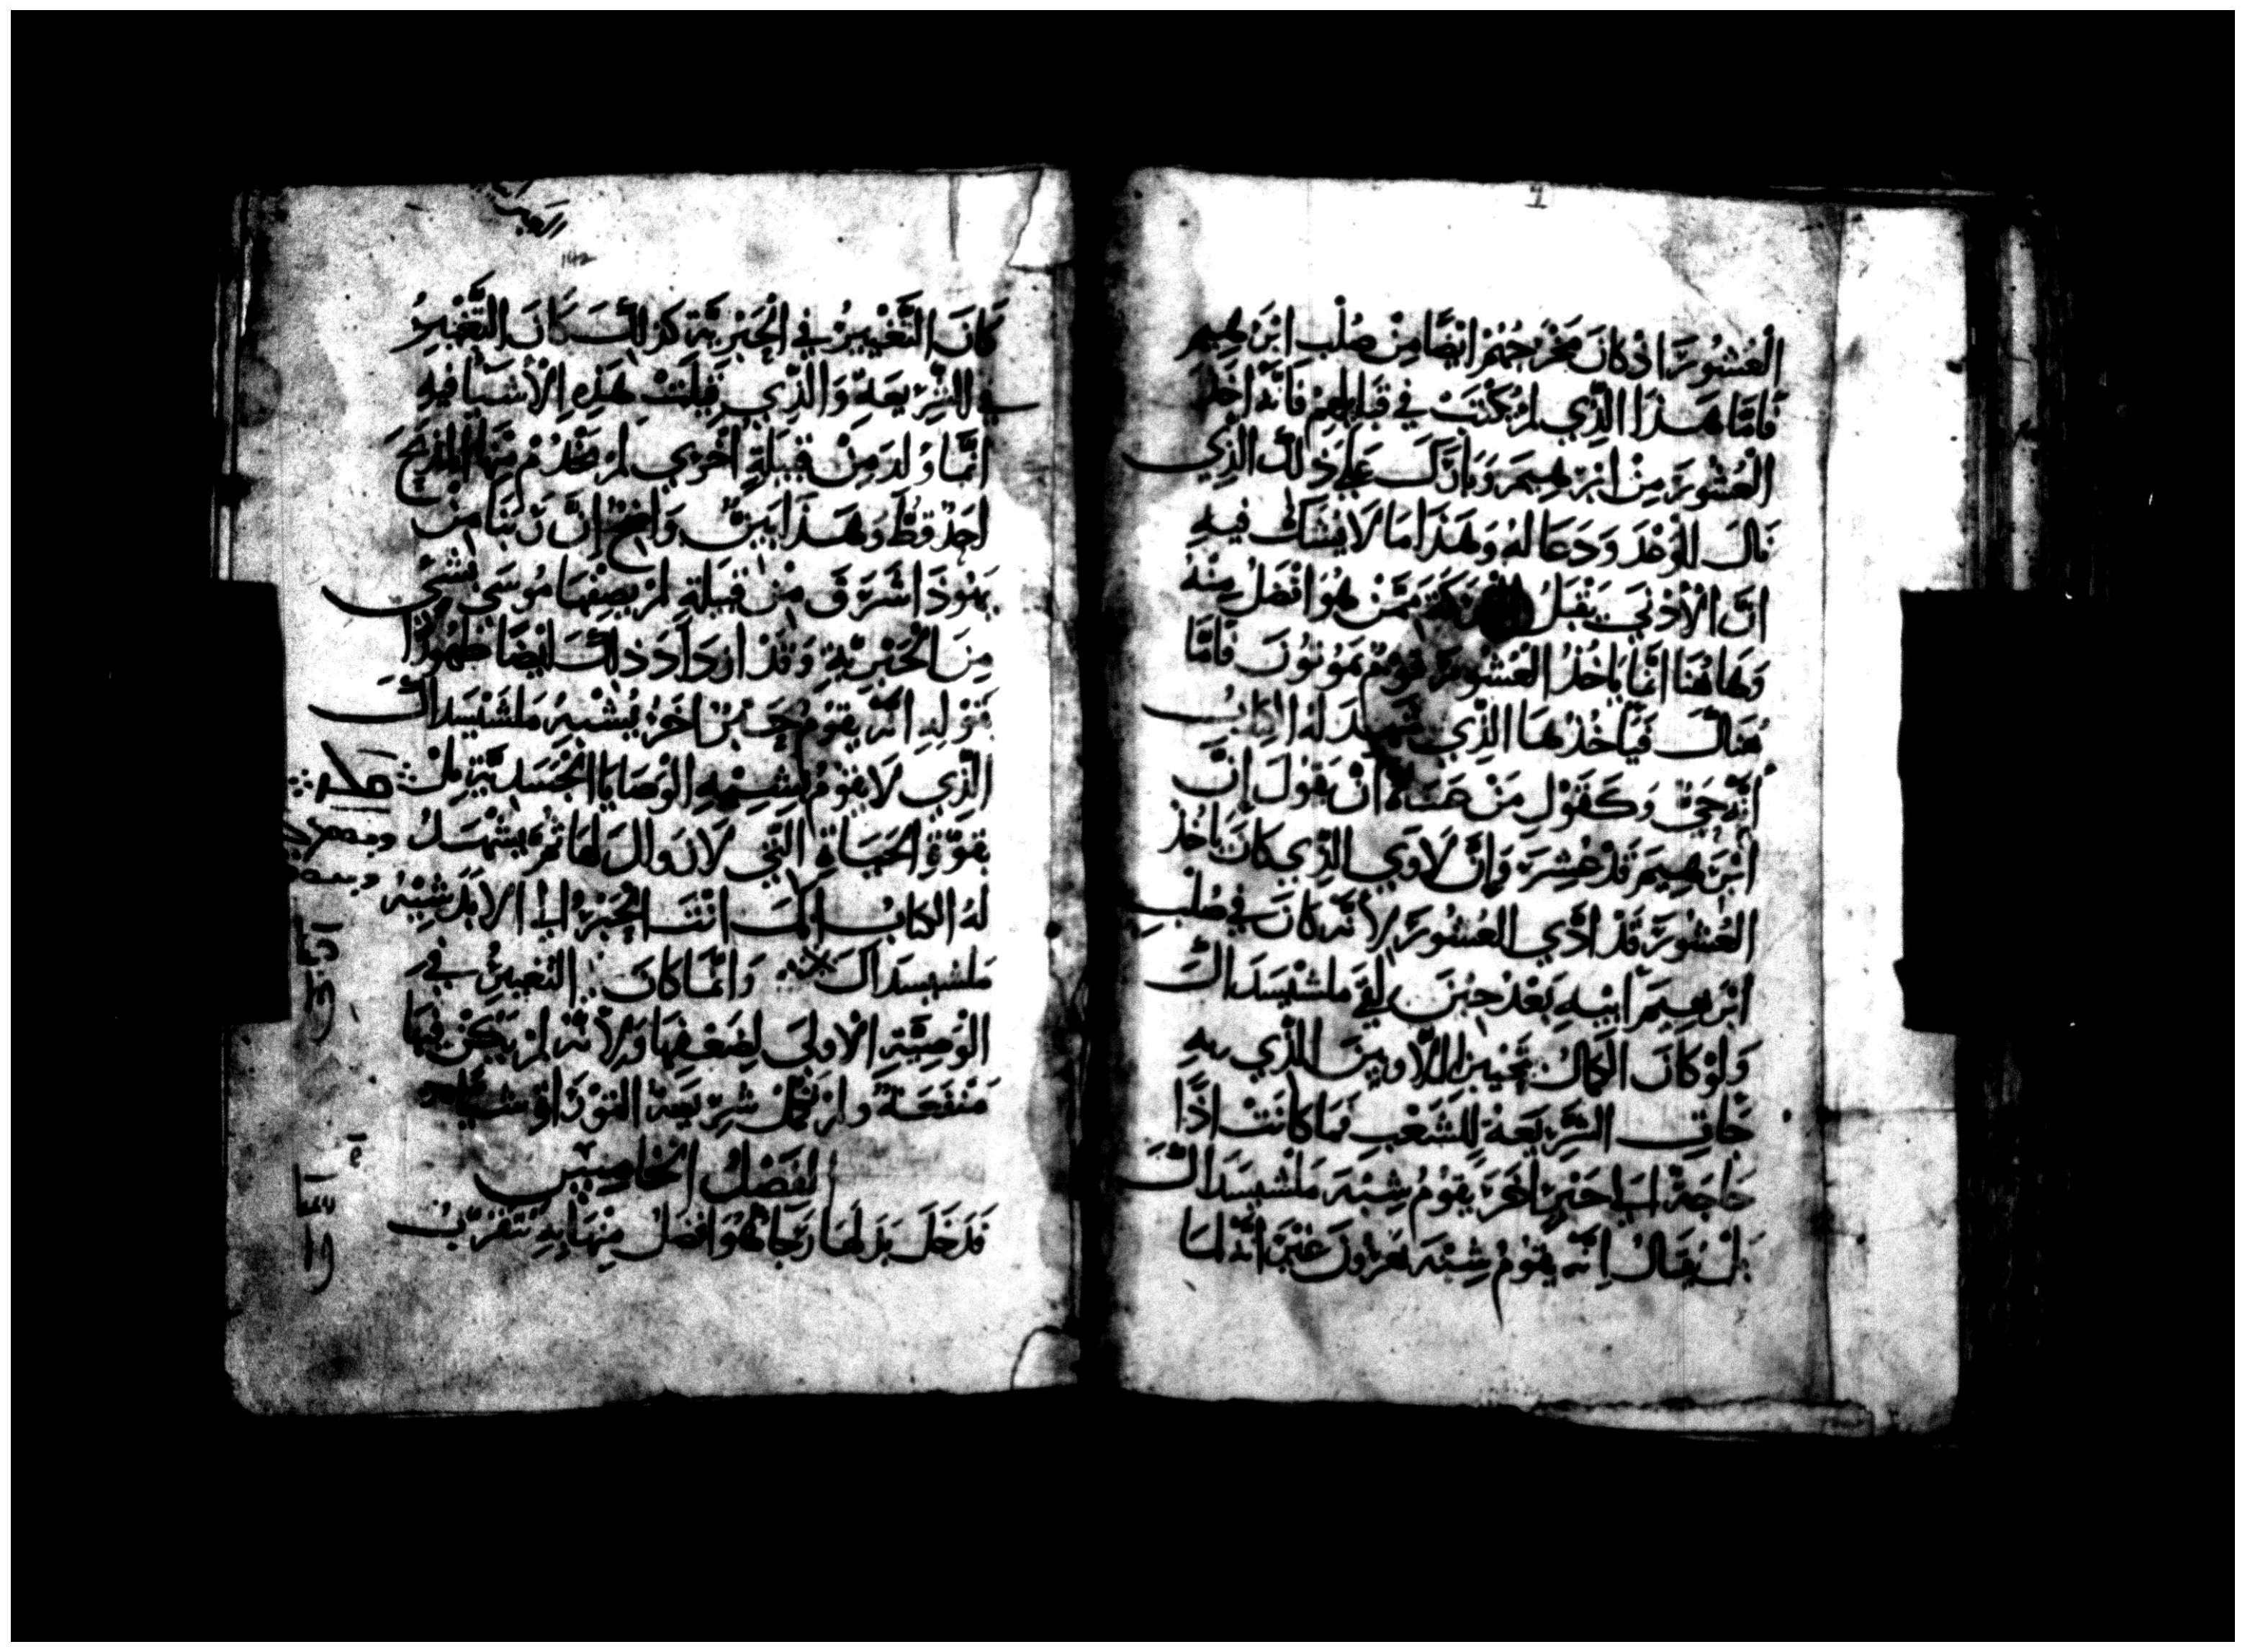 العُشُورَ اذ كانَ مَخْرَجُهُمْ ايْضًا مِنْ صُلْبِ ابْرَهِيم
فَامَّا هَذا الَّذِي لمْ يُكْتَبْ في قَبايلِهِمْ فَانَّهُ اخَذَ
العُشُورَ مِنْ ابْرَهِيمَ وَبارَكَ عَلَي ذَلكَ الذِي
نَالَ المَوْعِدَ وَدَعَا لهُ وَهَذا مَا لَا يُشَكُّ فيهِ
انَّ الأَدْنَي يَقْبَلُ البَرَكَةَ مِمَّنْ هُوَ افْضَلُ مِنْهُ
وَهَاهُنَا انَّمَا يَاخُذُ العُشُورَ قَوْمٌ يَمُوتُونَ فَامَّا
هُنَاكَ فَيَاخُذُهَا الذِّي شَهِدَ لهُ الكِتَابُ
أَنَّهُ حَيٌّ وَكَقَوْلِ مَنْ عَسَاهُ انْ يَقُولَ إنَّ
ابْرَهِيمَ قَدْ عُشِرَ وَإنَّ لَاوِي الذِّي كانَ يَاخُذ
العُشُورَ قَدْ ادَّي العُشُورَ لِأَنَّهُ كانَ في صُلْبِ
ابْرَهِيمَ ابِيهِ بَعْدُ حِيْنَ لقيَ ملشيسَدَاقَ
وَلَوْ كَانَ الكَمَالُ بِحَبْرِيَّةِ اللَّاوِيينَ الذِّي بهِ
جَاتِ الشَّرِيعَةُ لِلشَّعْبِ فمَا كانَتْ اذًا
حَاجَةٌ الى حَبْرٍ اخَرَ يَقومُ شِبْهَ مَلشيسَدَاقَ
بلْ يُقَالُ انَّهُ يَقُومُ شِبْهَ هَرُونَ غيْرَ أنَّهُ لمَا
كَانَ التَّغْيِيرُ في الحَبْرِيَّة كذلكَ كانَ التَّغْيِيرُ
في الشَّرِيعَةِ وَالَّذِي قِيلَتْ هَذِهِ الأَشْيَا فيهِ
انَّمَا وُلدَ مِنْ قَبِيلَةٍ اخْرَي لمْ يَخْدُمْ مِنْهَا المَذبَحَ
احَدٌ قطُّ وَهَذا بَيِّنٌ وَاضِحٌ إنَّ رَبَّنَا مِن
يَهُوذَا اشْرَقَ مِنْ قَبيلَةٍ لمْ يَصِفْهَا مُوسَي بشَيٍ
مِنَ الحَبْرِيَّةِ وَقَدْ ازدَادَ ذَلكَ ايْضًا ظُهُورًا
بقوْلِهِ انَّهُ يَقومُ حَبْرٌ اخَرُ يُشْبِهُ مَلشيسَدَاقَ
الَّذِي لَا يَقُومُ بسُنَّةِ الوَصَايَا الجَسَدِيَّةِ بَلْ
بقوَّةِ الحَيَاةِ التِّي لَا زَوالَ لهَا ثمَّ يَشْهَدُ
لهُ الكِتابُ انَّكَ انْتَ الحَبْرُ الى الأَبَدِ شِبْهُ
مَلشيسَدَاقَ وَانَّمَا كانَ التَّغْيِيرُ في
الوَصِيَّةِ الأُولَى لِضَعْفِهَا وَلأَنَّهُ لمْ يَكُنْ فيهَا
مَنْفَعَةٌ وَلمْ تُكَمِّلْ شَرِيعَةُ التَّوْرَاةِ شَيًّا
الفَصْلُ الخَامِسُ
فدَخَلَ بدَلهَا رَجَا هُوَ افْضَلُ مِنْهَا بِهِ نتَقَرَّبُ